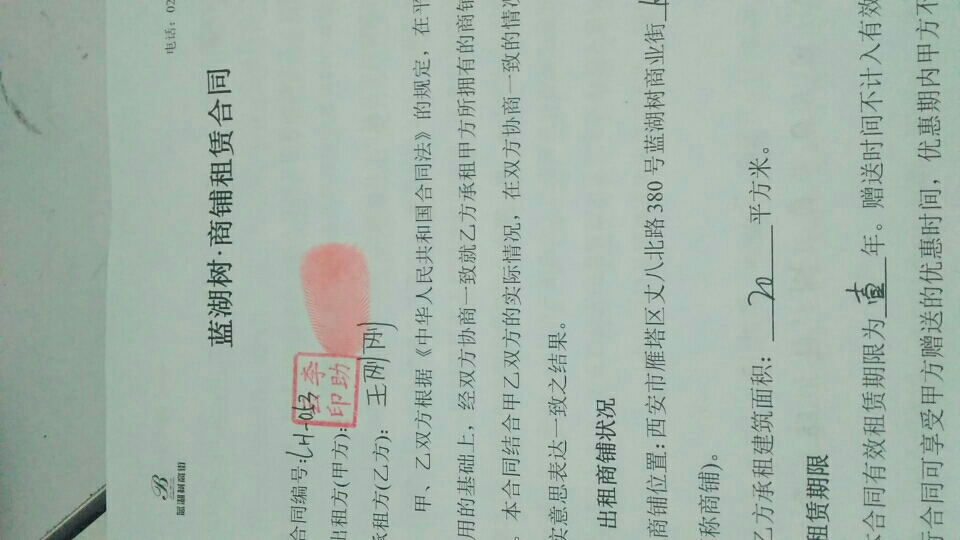 电话：02
蓝湖树
蓝湖树·商铺租赁合同
合同编号：LH-053
出租方（甲方）：
李助印
承租方（乙方）：王刚刚
甲、乙双方根据《中华人民共和国合同法》的规定，在平
用的基础上，经双方协商一致就乙方承租甲方所拥有的商铺
。本合同结合甲乙双方的实际情况，在双方协商一致的情况
实意思表达一致之结果。
出租商铺状况
商铺位置：西安市雁塔区丈八北路380号蓝湖树商业街
称商铺）。
乙方承租建筑面积：20平方米。
租赁期限
本合同有效租赁期限为壹年。赠送时间不计入有效
行合同可享受甲方赠送的优惠时间，优惠期内甲方不